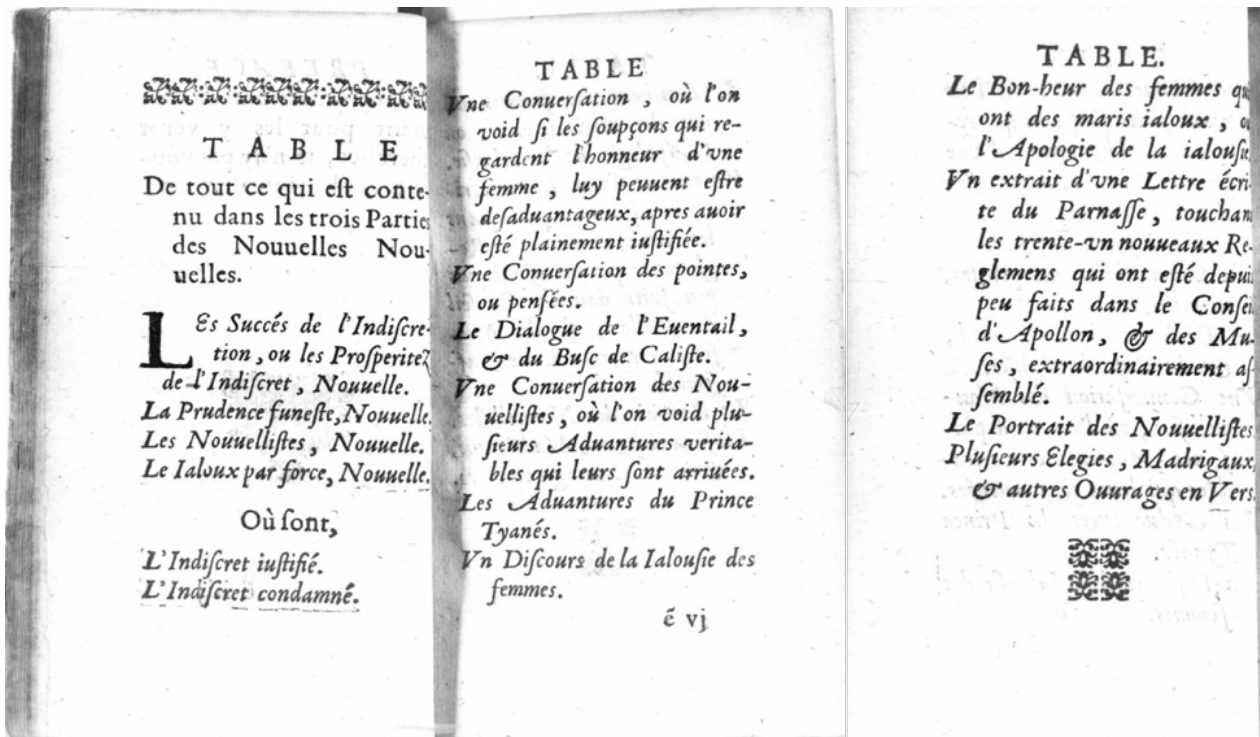 TABLE
De tout ce qui eſt conte-
nu dans les trois Parties
des Nouuelles Nou-
uelles.
LEs Succés de l'Indiſcre-
tion, ou les Proſperitez
de l'Indiſcret, Nouuelle.
La Prudence funeſte, Nouuelle.
Les Nouuelliſtes, Nouuelle.
Le Ialoux par force, Nouuelle.
Où ſont,
L'Indiſcret iuſtifié.
L'Indiſcret condamné.
TABLE
Vne Conuerſation, où l'on
void ſi les ſoupçons qui re-
gardent l'honneur d'vne
femme, luy peuuent eſtre
deſaduantageux, apres auoir
eſté plainement iuſtifiée.
Vne Conuerſation des pointes,
ou penſées.
Le Dialogue de l'Euentail,
& du Buſc de Caliſte.
Vne Conuerſation des Nou-
uelliſtes, où l'on void plu-
ſieurs Aduantures verita-
bles qui leurs ſont arriuées.
Les Aduantures du Prince
Tyanés.
Vn Diſcours de la Ialouſie des
femmes.
é vj
TABLE.
Le Bon-heur des femmes qu
ont des maris ialoux, o
l'Apologie de la ialouſie
Vn extrait d'vne Lettre écri-
te du Parnaſſe, touchan
les trente-vn nouueaux Re-
glemens qui ont eſté depui
peu faits dans le Conſei
d'Apollon, & des Mu-
ſes, extraordinairement aſ-
ſemblé.
Le Portrait des Nouuelliſtes
Pluſieurs Elegies, Madrigaux
& autres Ouurages en Vers